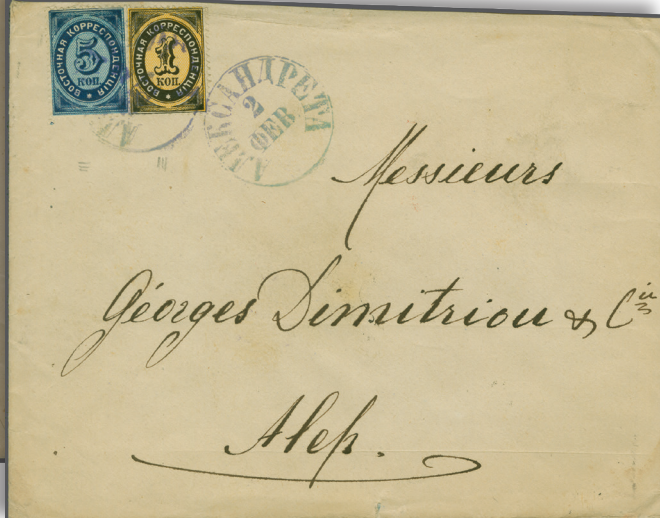 ВОСТОЧНАЯ КОРРЕСПОНДЕНЦІЯ
5
КОП.
ВОСТОЧНАЯ КОРРЕСПОНДЕНЦІЯ
1
КОП.
АЛЕКСАНДРЕТА
2
ФЕВ
Messieurs
Géorges Dimitriou & Cie
Alep.